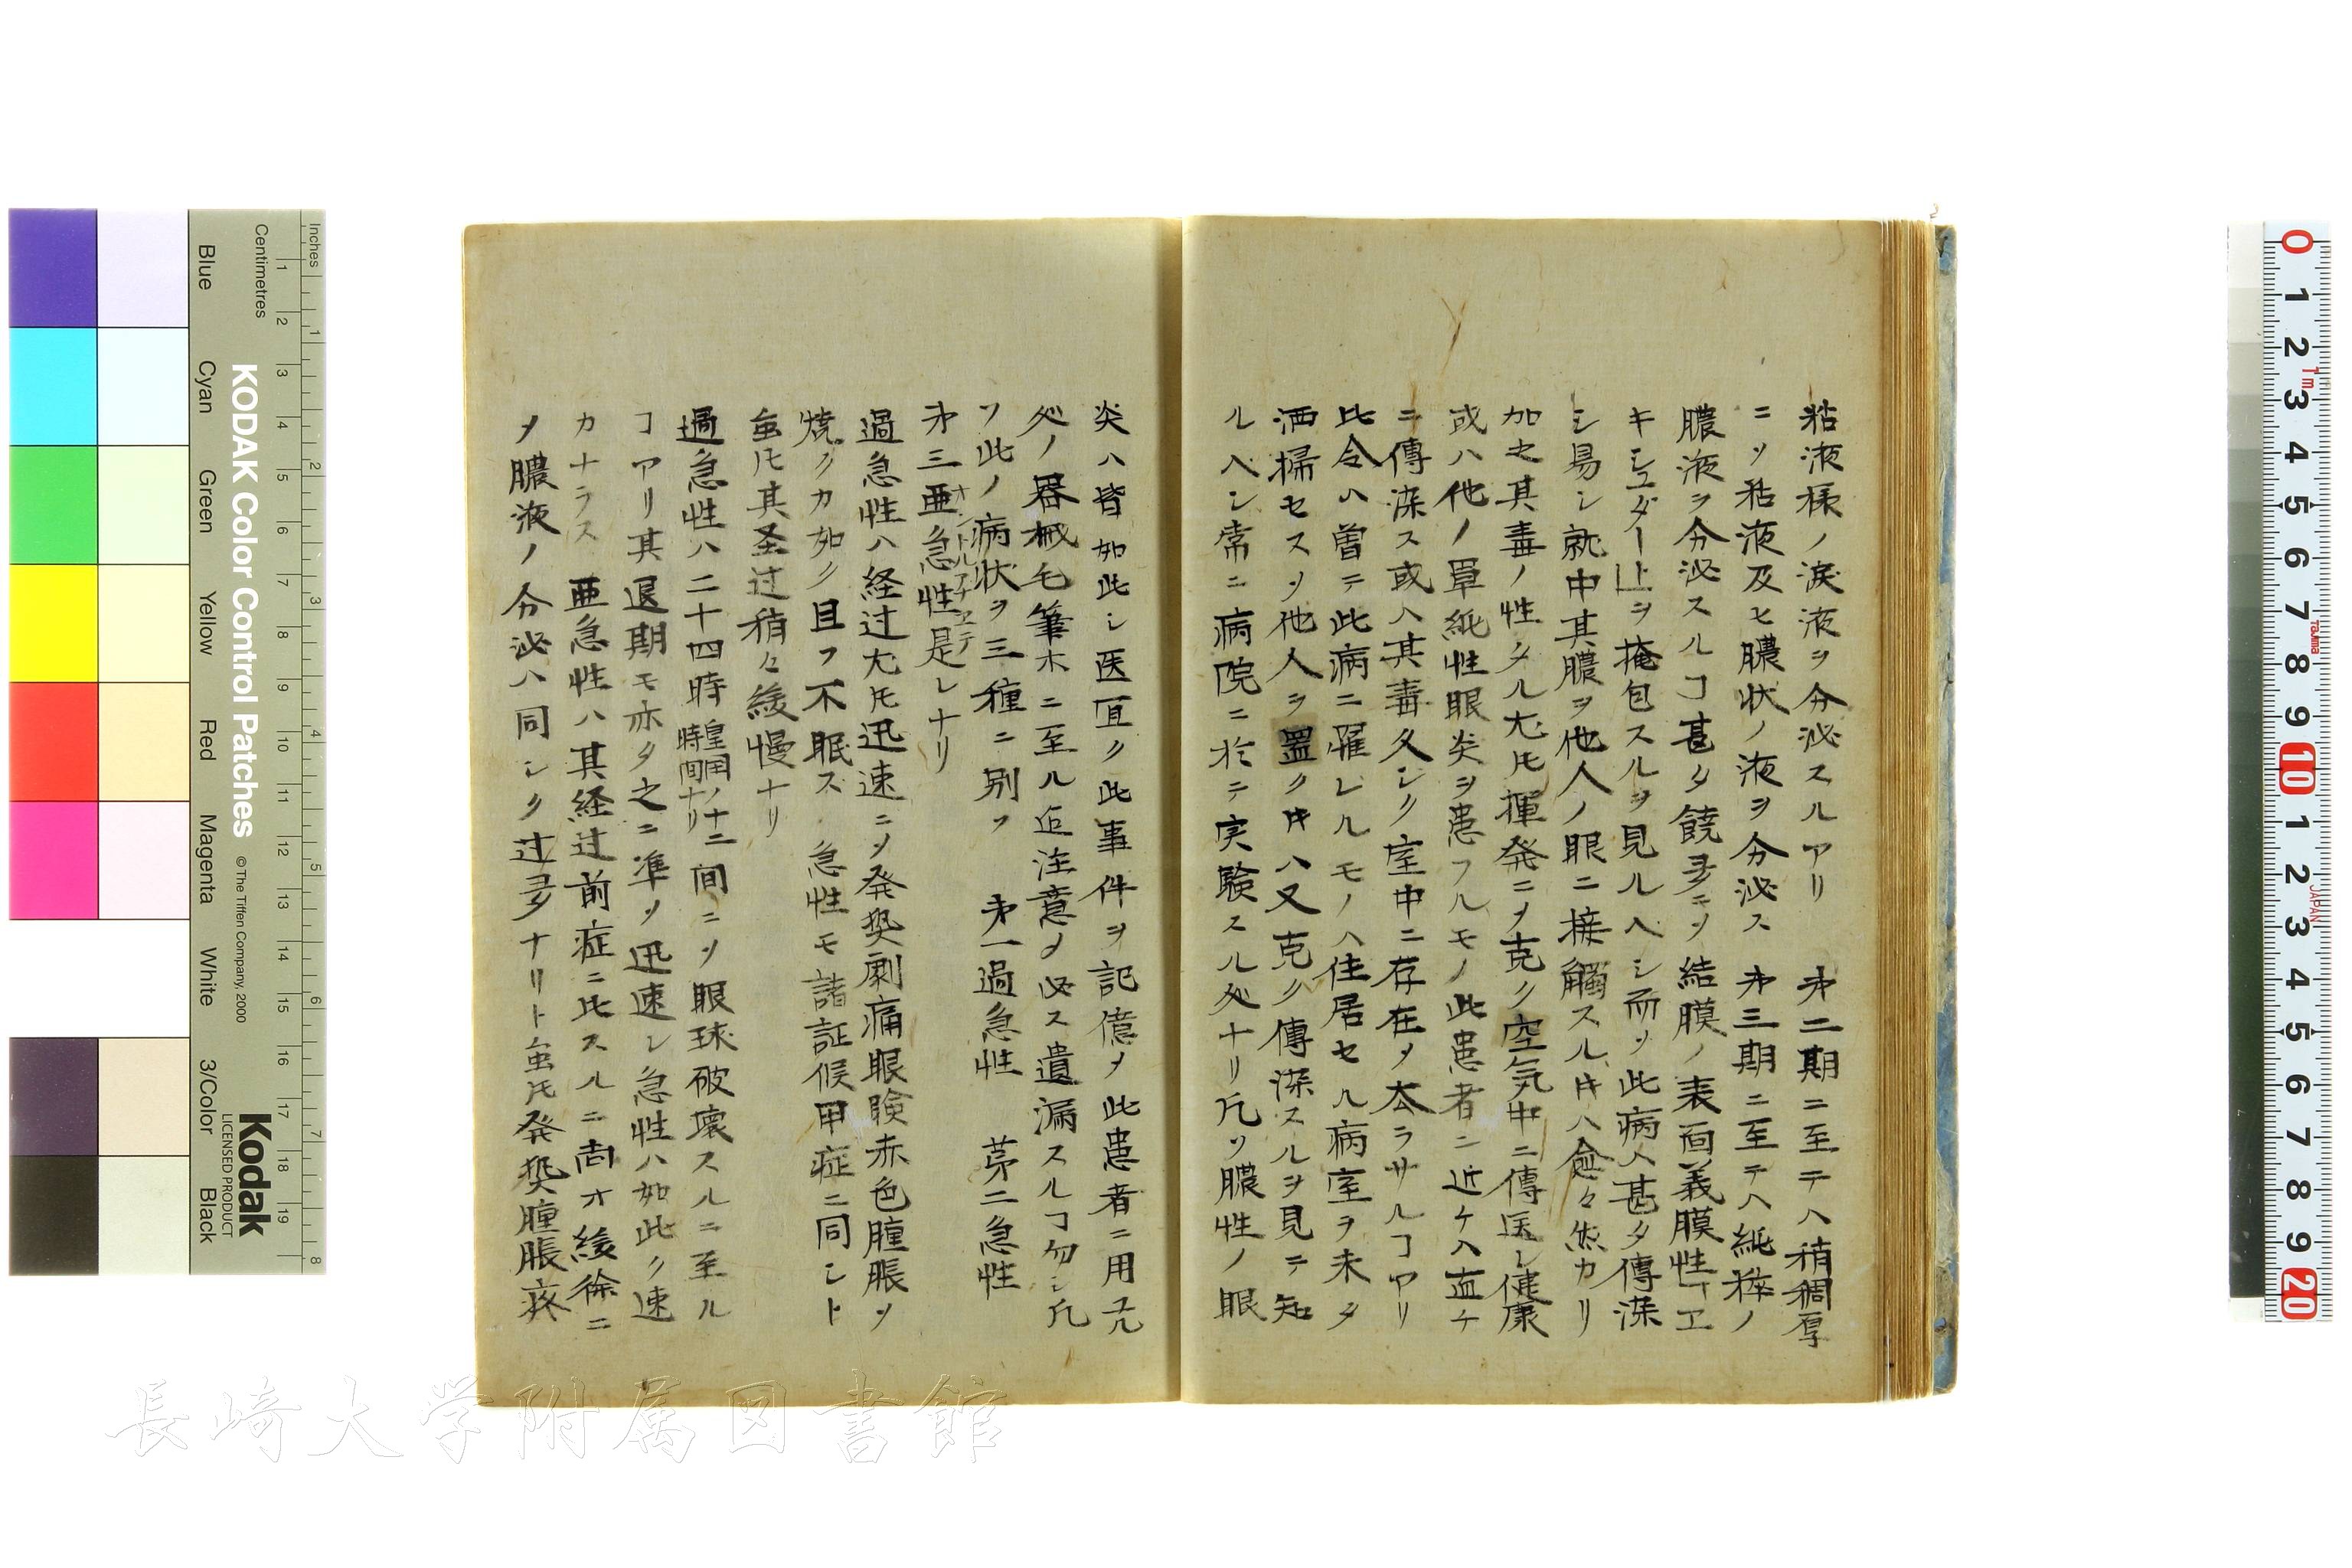 粘液様ノ涙液ヲ分泌スルアリ 㐧二期ニ至テハ稍稠厚
ニ〆粘液及ヒ膿状ノ液ヲ分泌ス 㐧三期ニ至テハ純粋ノ
膿液ヲ分泌スルヿ甚タ饒多ニ〆結膜ノ表面義膜性「エ
キシュダート」ヲ掩包スルヲ見ルヘシ而〆此病ハ甚タ傳染
シ易シ就中其膿ヲ他人ノ眼ニ接觸スル𪜈ハ愈々然カリ
加之其毒ノ性タル尤𪜈揮発ニ〆克ク空気中ニ傳送シ健康
或ハ他ノ単純性眼炎ヲ患フルモノ此患者ニ近ケハ直チ
ニ傳染ス或ハ其毒久シク室中ニ存在〆去ラサルヿアリ
比令ハ曽テ此病ニ罹レルモノハ住居セル病室ヲ未タ
洒掃セス〆他人ヲ置ク𪜈ハ又克ク傳染スルヲ見テ知
ルヘシ常ニ病院ニ於テ実験スル処ナリ凡ソ膿性ノ眼
炎ハ皆如此シ医宜ク此事件ヲ記億〆此患者ニ用フル
処ノ器械毛筆ホニ至ル迠注意〆必ス遺漏スルヿ勿シ凡
ソ此ノ病状ヲ三種ニ別ツ 㐧一過急性 㐧二急性
㐧三亜急性是レナリ
過急性ハ経过尤𪜈迅速ニ〆発㷔劇痛眼瞼赤色腫脹〆
焼クカ如ク且ツ不眠ス 急性モ諸証候甲症ニ同シト
虽𪜈其圣过稍々緩慢ナリ
過急性ハ二十四時皇国ノ十二時間ナリ間ニ〆眼球破壊スルニ至ル
ヿアリ其退期モ亦タ之ニ準〆迅速シ急性ハ如此ク速
カナラス 亜急性ハ其経过前症ニ比スルニ尚オ緩徐ニ
〆膿液ノ分泌ハ同シク过多ナリト虽𪜈発㷔腫脹疼